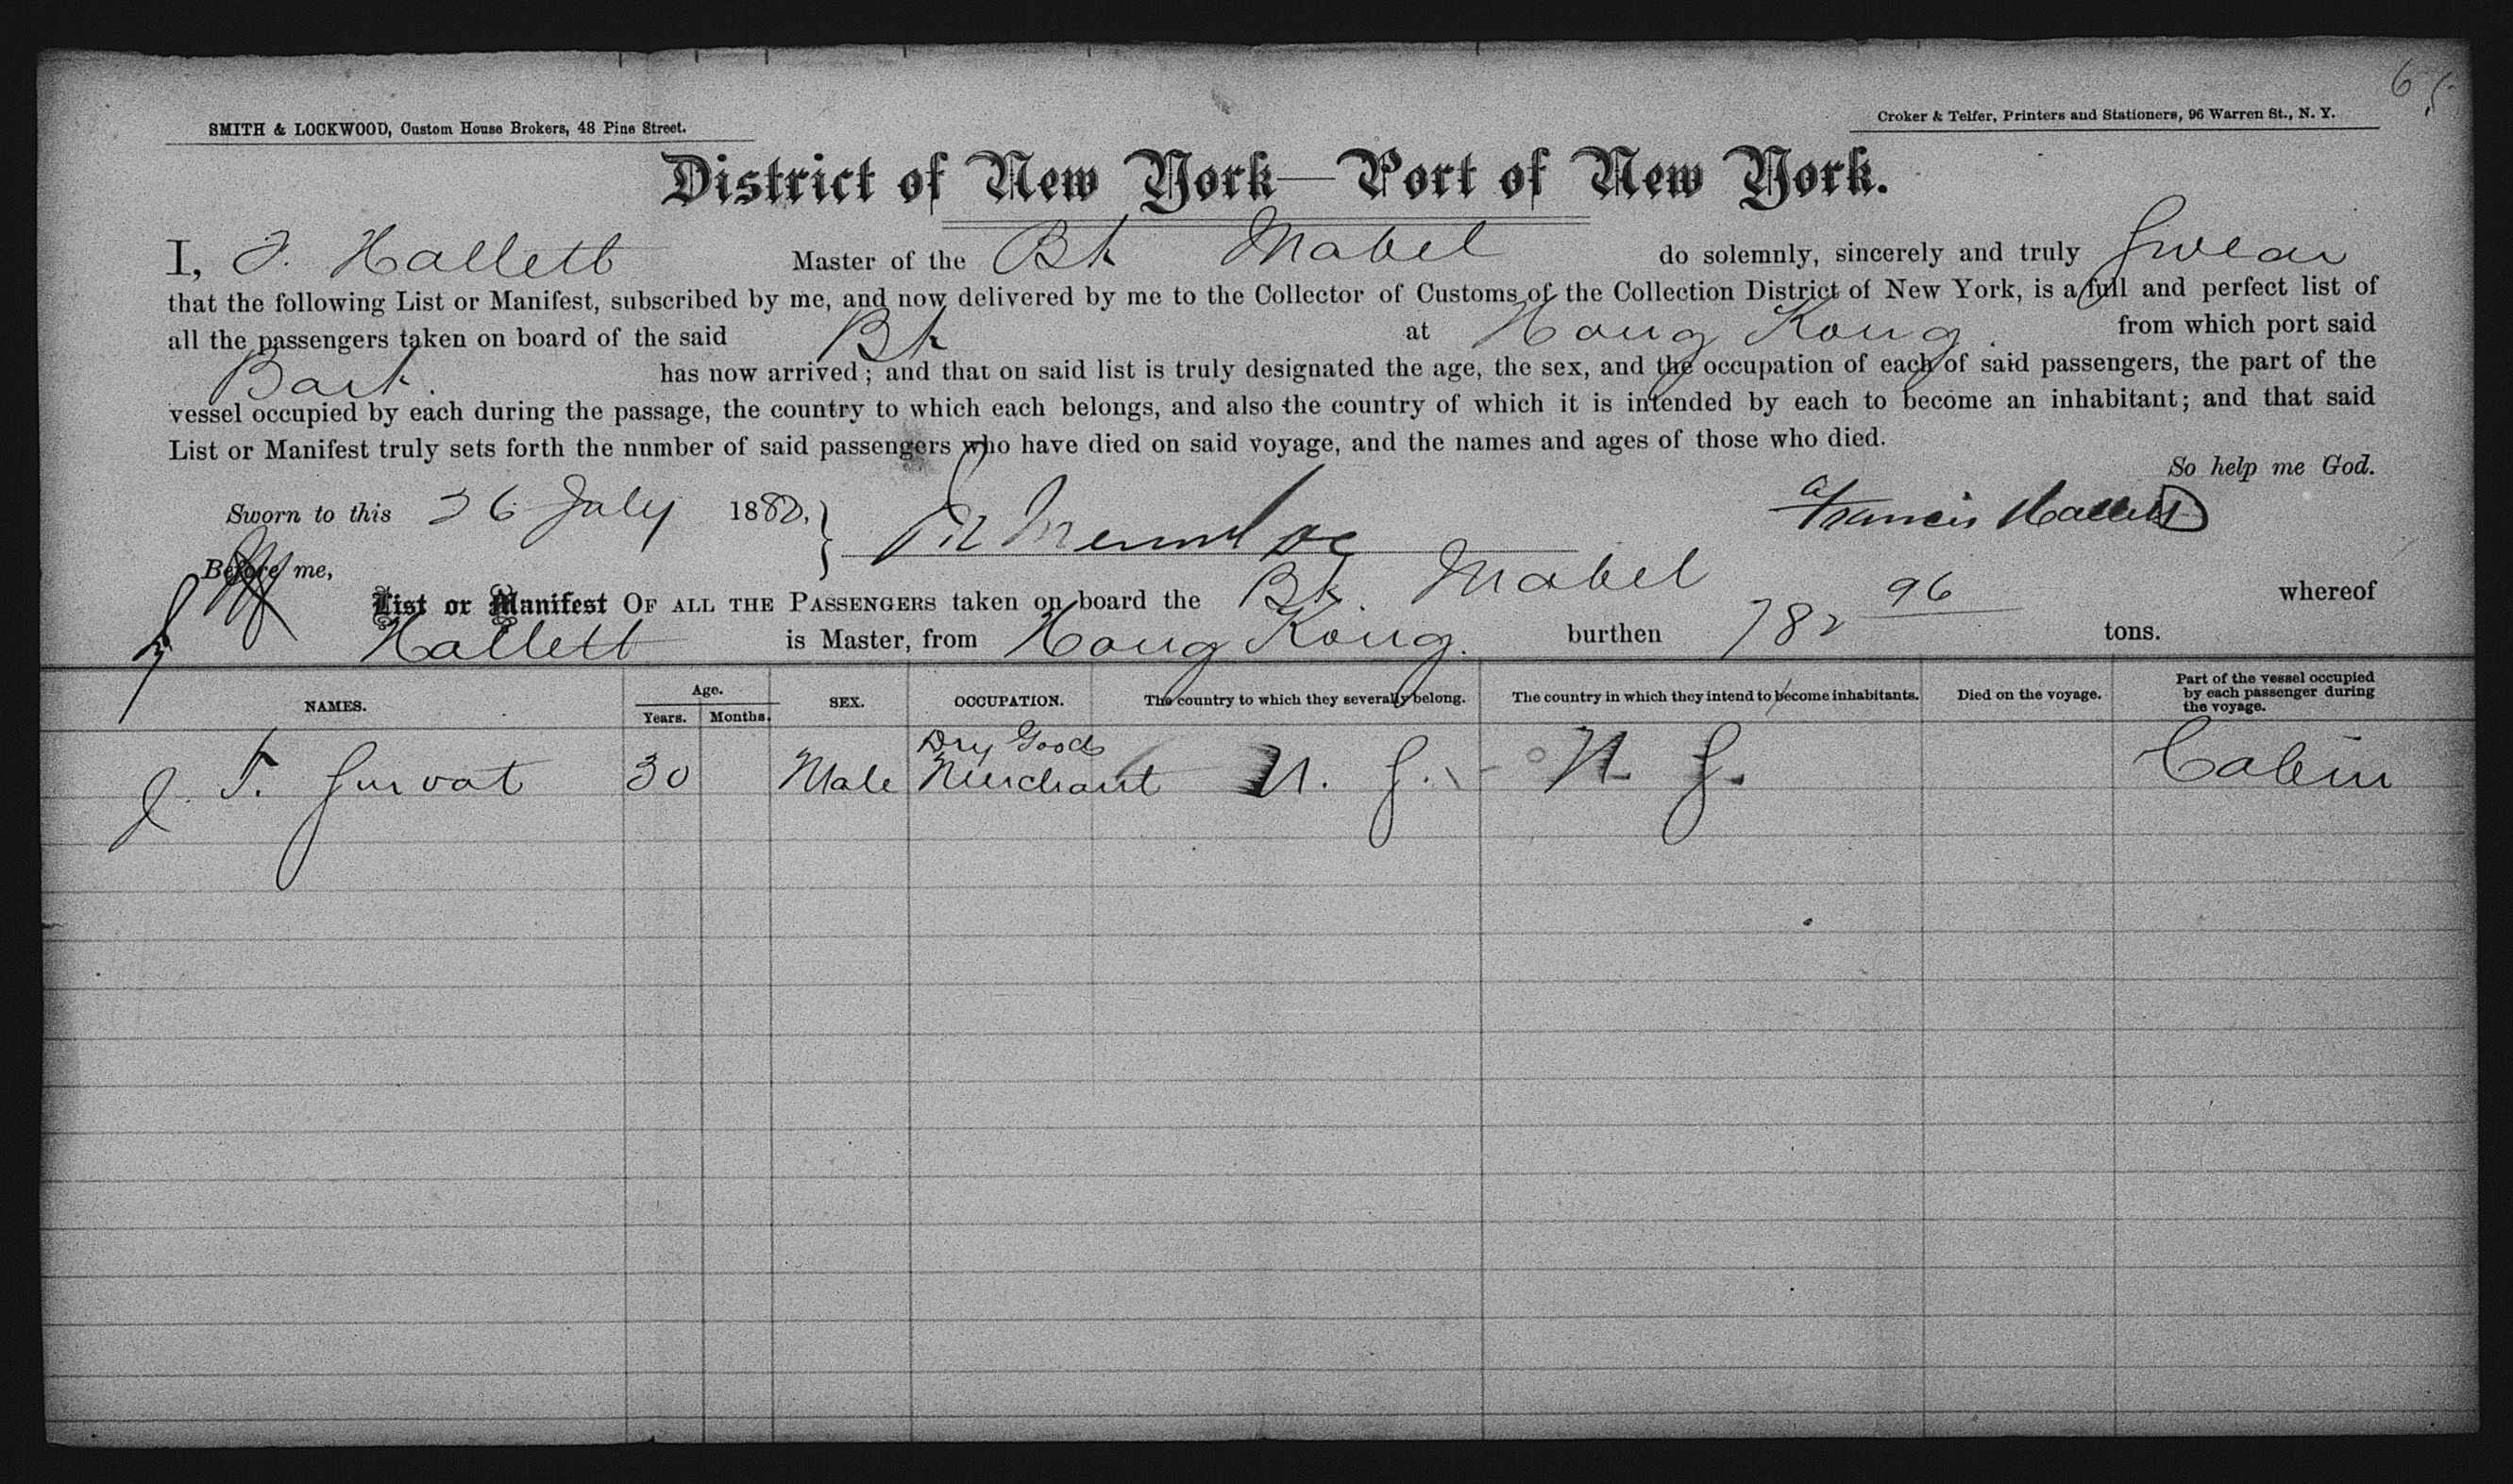 65
SMITH & LOCKWOOD, Custom House Brokers, 48 Pine Street.
Croker & Telfer, Printers and Stationers, 96 Warren St., N. Y.
District of New York—Port of New York.
I, F. Hallett Master of the Bk Mabel do solemnly, sincerely and truly Swear
that the following List or Manifest, subscribed by me, and now delivered by me to the Collector of Customs of the Collection District of New York, is a full and perfect list of
all the passengers taken on board of the said Bk at Hong Kong. from which port said
Bark. has now arrived; and that on said list is truly designated the age, the sex, and the occupation of each of said passengers, the part of the
vessel occupied by each during the passage, the country to which each belongs, and also the country of which it is intended by each to become an inhabitant; and that said
List or Manifest truly sets forth the nnmber of said passengers who have died on said voyage, and the names and ages of those who died.
So help me God.
Sworn to this 26 July 1880, Francis Hallett
Before me,
List or Manifest OF ALL THE PASSENGERS taken on board the Bk. Mabel whereof
Hallett is Master, from Hong Kong. burthen 782 96 tons.
NAMES. Age. Years. Months. SEX. OCCUPATION. The country to which they severally belong. The country in which they intend to become inhabitants. Died on the voyage. Part of the vessel occupied by each passenger during the voyage.
J. F. 30 Male Dry Goods Merchant U. S. U. S. Cabin